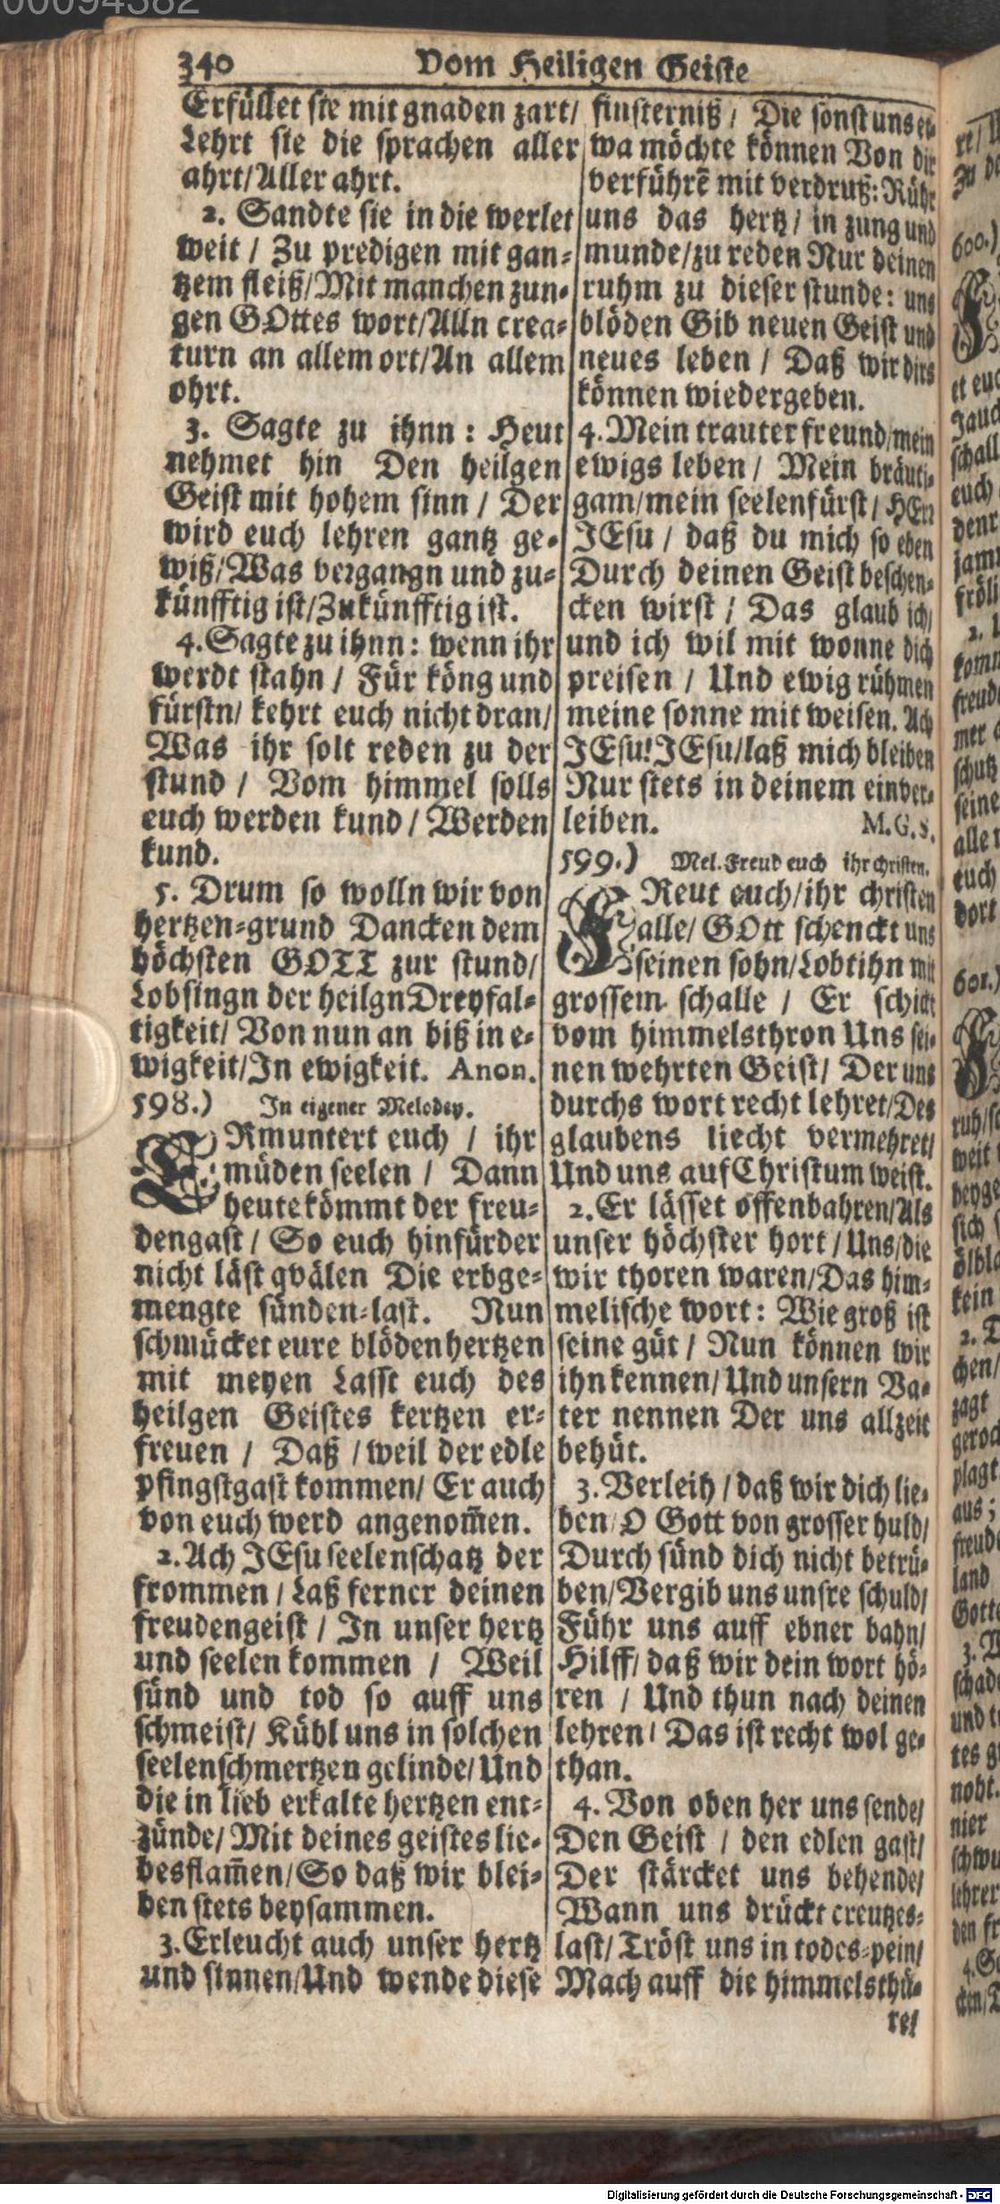 340 Vom Heiligen Geiste
Erfüllet sie mit gnaden zart/
Lehrt sie die sprachen aller
ahrt/Aller ahrt.
2. Sandte sie in die werlet
weit / Zu predigen mit gan-
tzem fleiß/Mit manchen zun-
gen GOttes wort/Alln crea-
turn an allem ort/An allem
ohrt.
3. Sagte zu ihnn: Heut
nehmet hin Den heilgen
Geist mit hohem sinn / Der
wird euch lehren gantz ge-
wiß/Was vergangn und zu-
künfftig ist/Zukünfftig ist.
4. Sagte zu ihnn: wenn ihr
werdt stahn / Für köng und
fürstn/ kehrt euch nicht dran/
Was ihr solt reden zu der
stund / Vom himmel solls
euch werden kund / Werden
kund.
5. Drum so wolln wir von
hertzen-grund Dancken dem
höchsten GOTT zur stund/
Lobsingn der heilgn Dreyfal-
tigkeit/ Von nun an biß in e-
wigkeit/In ewigkeit. Anon.
598.) In eigener Melodey.
ERmuntert euch / ihr
müden seelen / Dann
heute kömmt der freu-
dengast / So euch hinfürder
nicht läst qvälen Die erbge-
mengte sünden-last. Nun
schmücket eure blöden hertzen
mit meyen Lasst euch des
heilgen Geistes kertzen er-
freuen / Daß / weil der edle
pfingstgast kommen/ Er auch
von euch werd angenom̃en.
2. Ach JEsu seelenschatz der
frommen / Laß ferner deinen
freudengeist / In unser hertz
und seelen kommen / Weil
sünd und tod so auff uns
schmeist/ Kühl uns in solchen
seelenschmertzen gelinde/ Und
die in lieb erkalte hertzen ent-
zünde/ Mit deines geistes lie-
besflam̃en/So daß wir blei-
ben stets beysammen.
3. Erleucht auch unser hertz
und sinnen/Und wende diese
finsterniß / Die sonst uns et-
wa möchte können Von dir
verführẽ mit verdruß: Rühr
uns das hertz / in zung und
munde/zu reden Nur deinen
ruhm zu dieser stunde: uns
blöden Gib neuen Geist und
neues leben / Daß wir dirs
können wiedergeben.
4. Mein trauter freund/mein
ewigs leben / Mein bräuti-
gam/mein seelenfürst / HErr
JEsu / daß du mich so eben
Durch deinen Geist beschen-
cken wirst / Das glaub ich/
und ich wil mit wonne dich
preisen / Und ewig rühmen
meine sonne mit weisen. Ach
JEsu! JEsu/laß mich bleiben
Nur stets in deinem einver-
leiben. M. G. S.
599.) Mel. Freud euch ihr christen.
FReut euch/ihr christen
alle/ GOtt schenckt uns
seinen sohn/Lobt ihn mit
grossem schalle / Er schickt
vom himmelsthron Uns sei-
nen wehrten Geist/ Der uns
durchs wort recht lehret/Des
glaubens liecht vermehret/
Und uns auf Christum weist.
2. Er lässet offenbahren/Als
unser höchster hort / Uns/die
wir thoren waren/Das him-
melische wort: Wie groß ist
seine güt / Nun können wir
ihn kennen/ Und unsern Va-
ter nennen Der uns allzeit
behüt.
3. Verleih / daß wir dich lie-
ben/ O Gott von grosser huld/
Durch sünd dich nicht betrü-
ben/Vergib uns unsre schuld/
Führ uns auff ebner bahn/
Hilff/ daß wir dein wort hö-
ren / Und thun nach deinen
lehren/ Das ist recht wol ge-
than.
4. Von oben her uns sende/
Den Geist / den edlen gast/
Der stärcket uns behende/
Wann uns drückt creutzes-
last/ Tröst uns in todes-pein/
Mach auff die himmelsthü-
re/
Digitalisierung gefördert durch die Deutsche Forschungsgemeinschaft - DFG